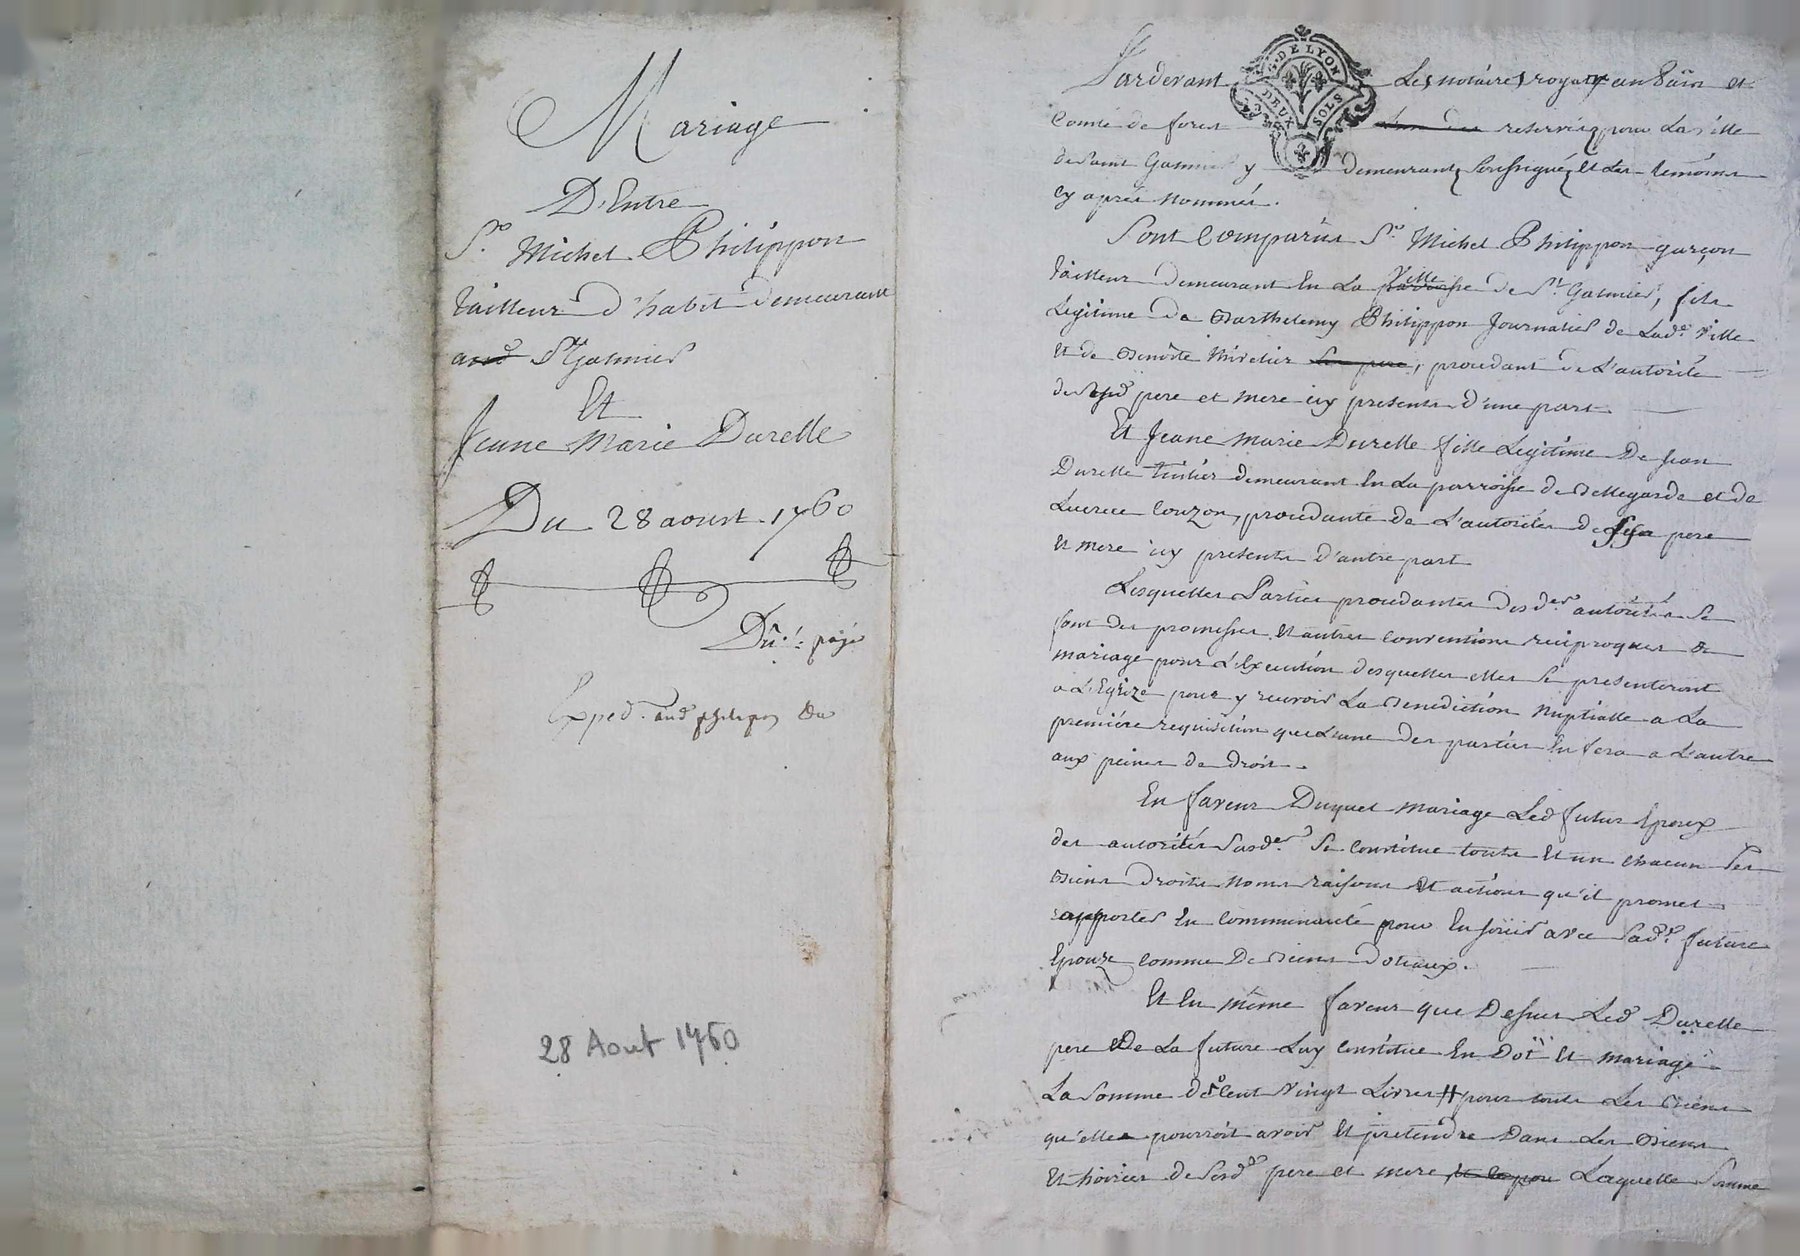 Mariage
D'Entre
Sr. Michel Philippon
tailleur d'habit demeurant
St Galmier
Et
Jeane Marie Durelle
Du 28 aoust 1760
payé
Exped. aud philipon
28 Aout 1760
G. DE LYON
DEUX SOLS
Pardevant Les notaires royaux au
Comté de forest reservés pour La ville
de Saint Galmier y demeurants soussignés et des temoins
cy apres nommés.
Sont Comparus Sr. Michel Philippon garçon
tailleur demeurant En La Ville de St. Galmier, fils
Legitime de Barthelemy Philippon Journalier de Lade. ville
Et de Benoite , procedant de L'autorité
de pere et mere icy presents d'une part.
Et Jeane Marie Durelle fille Legitime De Jean
Durelle demeurant En La parroisse de Bellegarde et de
Lucrece Couzon, procedante de L'autorités de pere
et mere icy presents d'autre part
Lesquelles Parties procedantes desdes. autorités se
sont des promesses et autres conventions reciproques de
mariage pour L'Execution desquelles elles se presenteront
a L'Eglize pour y recevoir La Benediction Nuptialle a La
premiére requisition que L'une des parties En fera a L'autre
aux peines de droit.
En faveur Duquel mariage Led futur Epoux
des autorités susdes. se constitue touts Et un chacun ses
Biens Droits Noms raisons Et actions qu'il promet
rapporter En Communauté pour En jouir avec sade. future
Epouze comme De Biens dotiaux.
Et En même faveur que Dessus Led Durelle
pere De La future Luy constitue En Dot Et mariage
La Somme de Cent vingt Livres pour touts Les Biens
qu'elle pourroit avoir Et pretendre Dans Les Biens
Et hoiries de sesd pere et mere Laquelle Somme